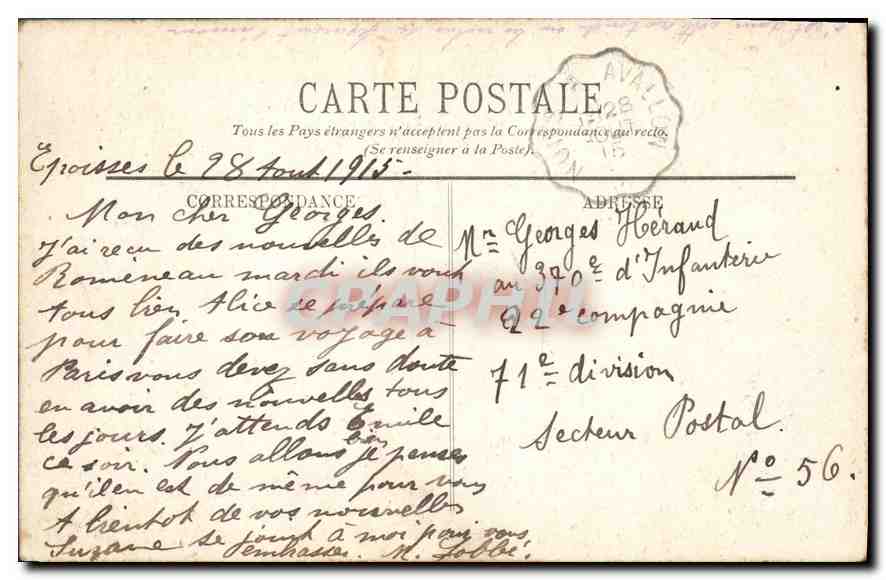 AVALLON
28
15
CARTE POSTALE
Tous les Pays étrangers n'acceptent pas la Correspondance au recto.
(Se renseigner à la Poste).
Epoisses le 28 Aout 1915-
CORRESPONDANCE
Mon cher Georges.
J'ai recu des nouvelles de
Romeneau mardi ils vont
tous bien Alice se prépare
pour faire son voyage à
Paris vous devez sans doute
en avoir des nouvelles tous
les jours. J'attends Emile
ce soir. Nous allons bien je penses
qu'il en est de même pour vous
A bientot de vos nouvelles
Suzane se joint à moi pour vous
embrasser. M. Lobbé.
ADRESSE
Mr Georges Héraud
au 370e d'Infanterie
22e compagnie
71e division
Secteur Postal.
No 56.
CRAPHIL